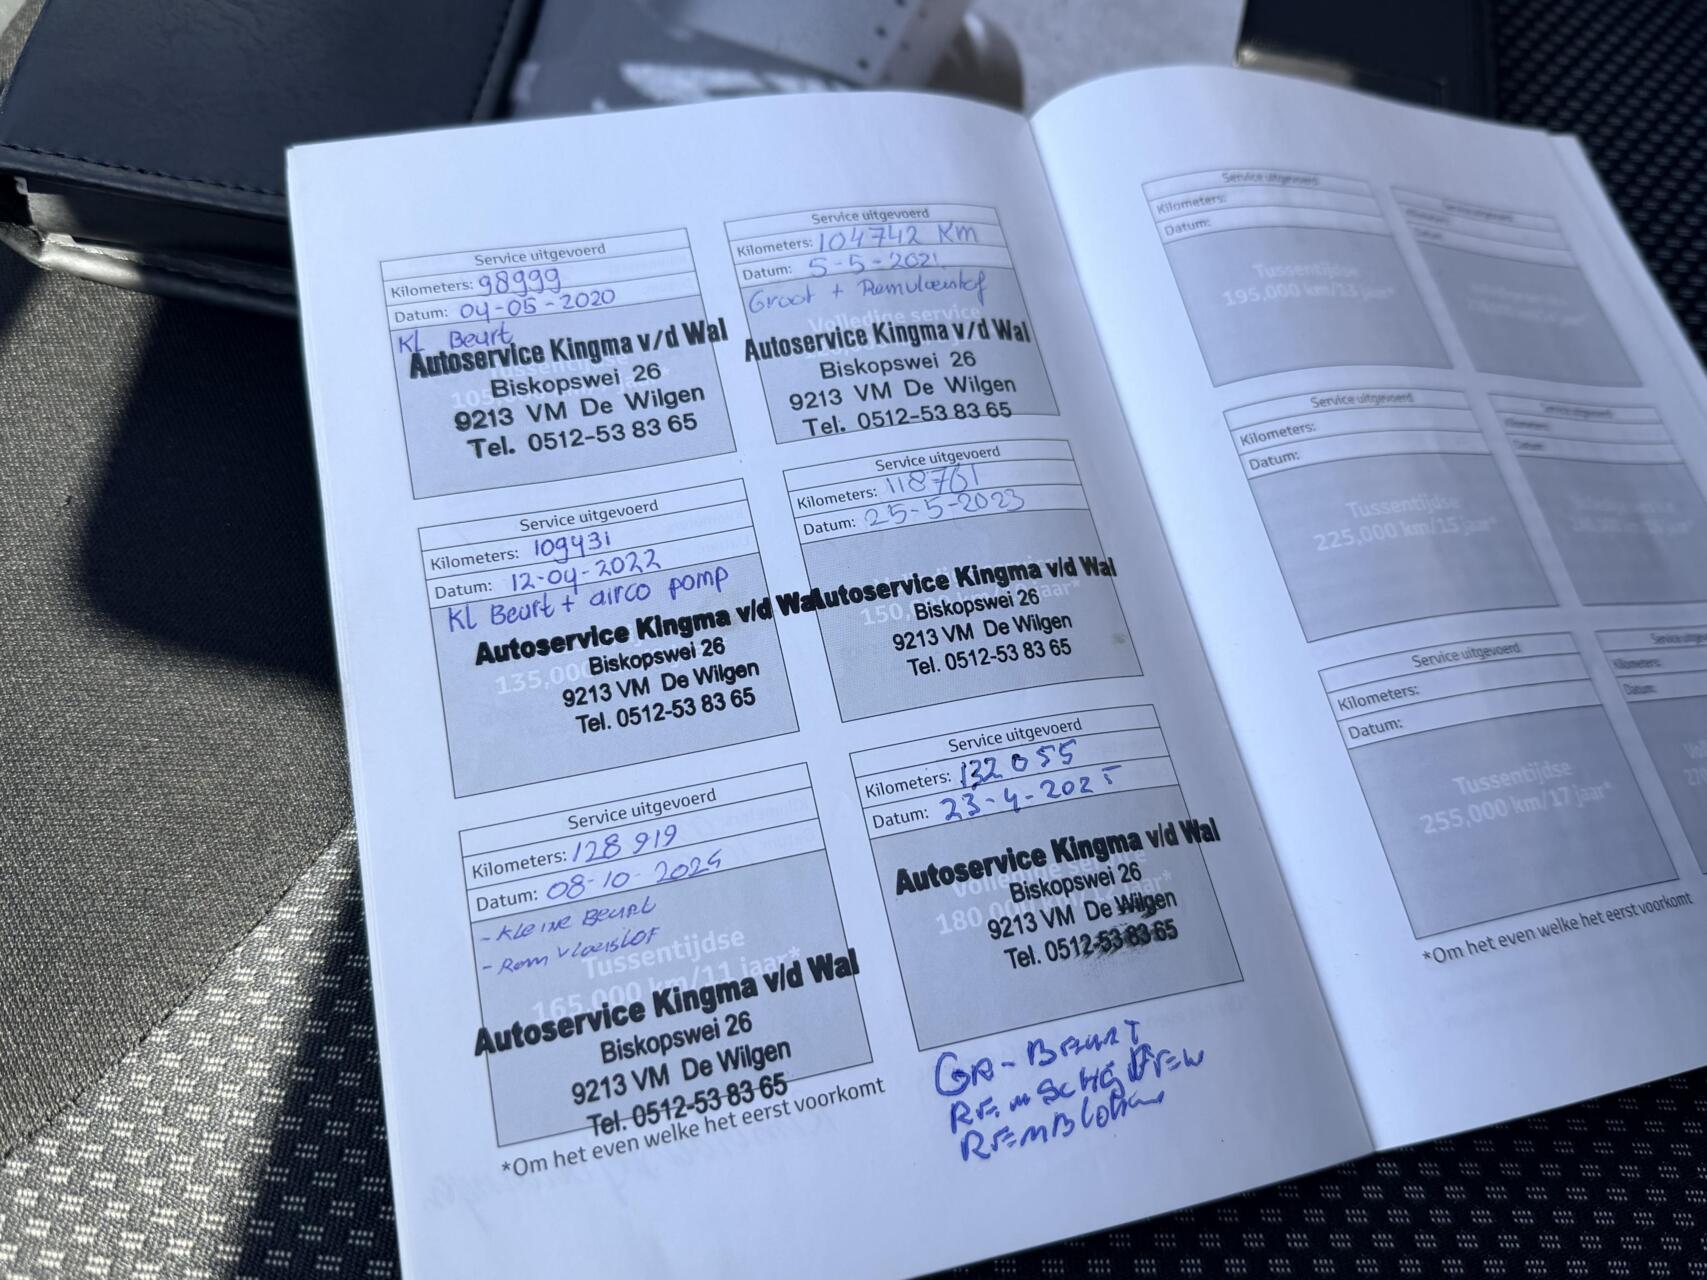 Service uitgevoerd
Kilometers: 98999
Datum: 04-05-2020
KL Beurt
Autoservice Kingma v/d Wal
Biskopswei 26
9213 VM De Wilgen
Tel. 0512-53 83 65
Service uitgevoerd
Kilometers: 104742 Km
Datum: 5-5-2021
Groot + Remvloeistof
Volledige service
Autoservice Kingma v/d Wal
Biskopswei 26
9213 VM De Wilgen
Tel. 0512-53 83 65
Service uitgevoerd
Kilometers: 109431
Datum: 12-04-2022
KL Beurt + airco pomp
Autoservice Kingma v/d Wal
Biskopswei 26
135,000
9213 VM De Wilgen
Tel. 0512-53 83 65
Service uitgevoerd
Kilometers: 118761
Datum: 25-5-2023
Autoservice Kingma v/d Wal
150, jaar*
Biskopswei 26
9213 VM De Wilgen
Tel. 0512-53 83 65
Service uitgevoerd
Kilometers: 128 919
Datum: 08-10-2024
- Kleine Beurt
- Rem vloeistof
Tussentijdse
165,000 km/11 jaar*
Autoservice Kingma v/d Wal
Biskopswei 26
9213 VM De Wilgen
Tel. 0512-53 83 65
Service uitgevoerd
Kilometers: 132 055
Datum: 23-4-2025
Autoservice Kingma v/d Wal
Volledige service
Biskopswei 26
180 000 jaar*
9213 VM De Wilgen
Tel. 0512-53 83 65
GR-Beurt
*Om het even welke het eerst voorkomt
Service uitgevoerd
Kilometers:
Datum:
Tussentijdse
195,000 km/13 jaar*
Service uitgevoerd
Kilometers:
Datum:
Service uitgevoerd
Kilometers:
Datum:
Tussentijdse
225,000 km/15 jaar*
Service uitgevoerd
Kilometers:
Datum:
Service uitgevoerd
Kilometers:
Datum:
Tussentijdse
255,000 km/17 jaar*
Service uitgevoerd
Kilometers:
Datum:
*Om het even welke het eerst voorkomt